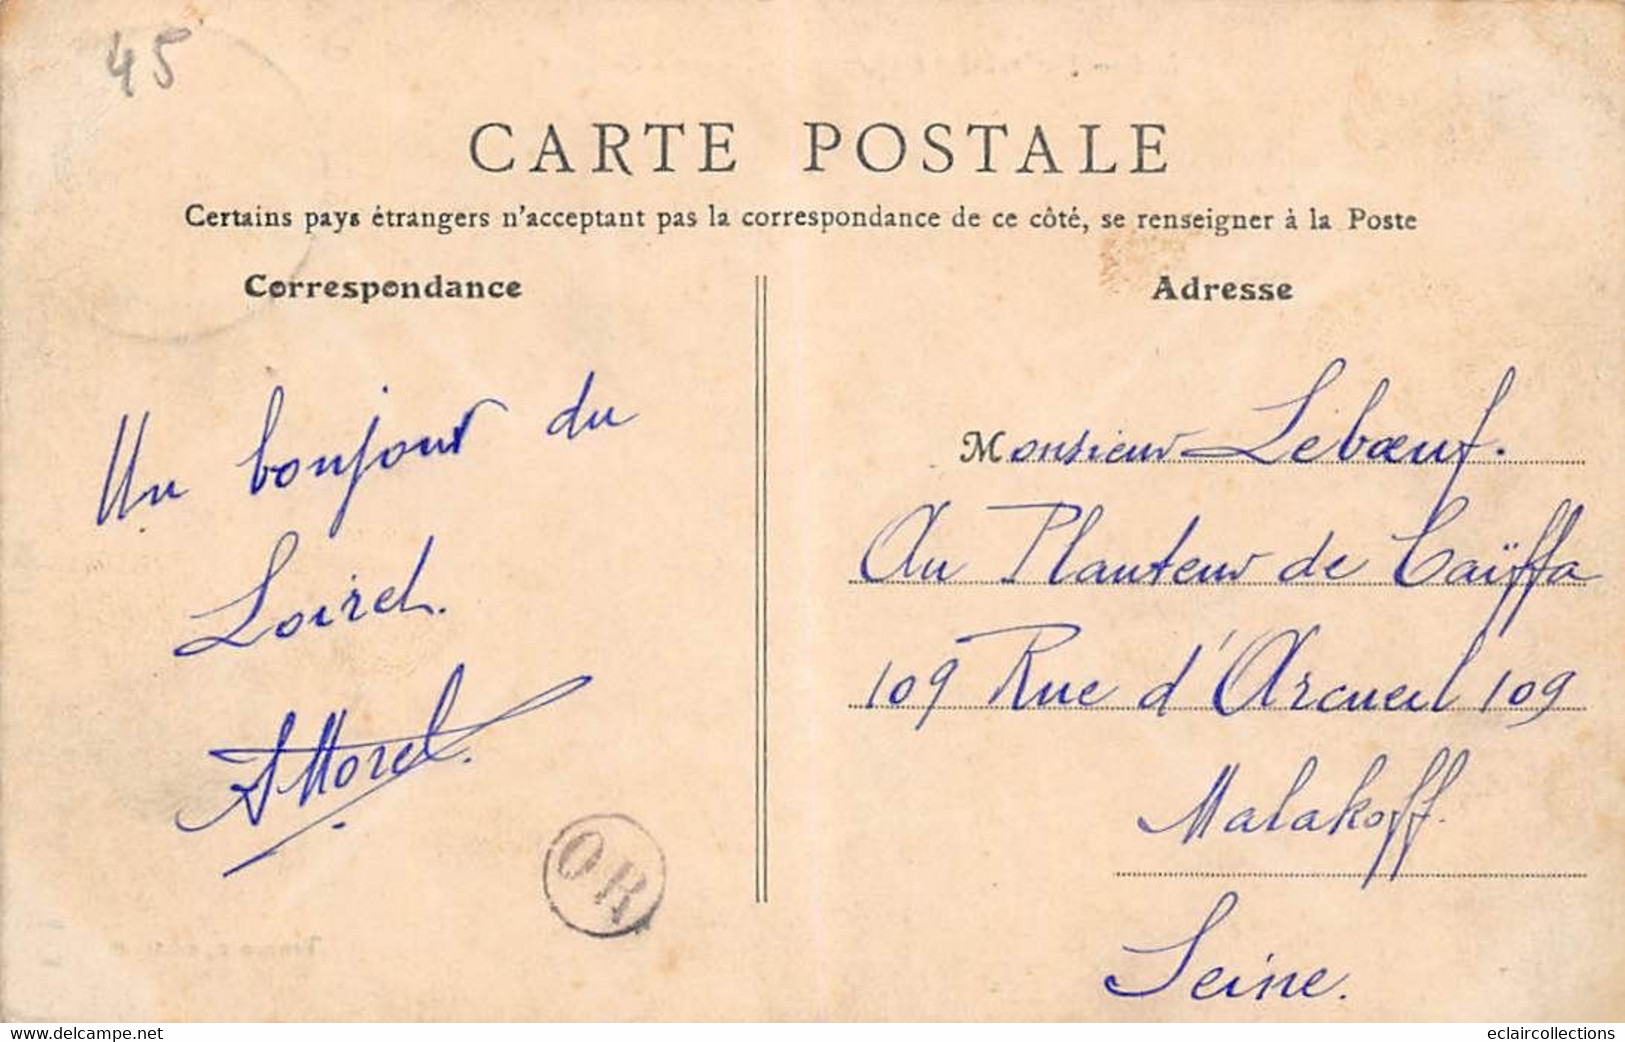 45
CARTE POSTALE
Certains pays étrangers n'acceptant pas la correspondance de ce côté, se renseigner à la Poste
Correspondance
Adresse
Un bonjour du
Loiret.
AMorel.
OR
Monsieur Lebœuf.
Au Planteur de Caïffa
109 Rue d'Arcueil 109
Malakoff.
Seine.
www.delcampe.net
eclaircollections